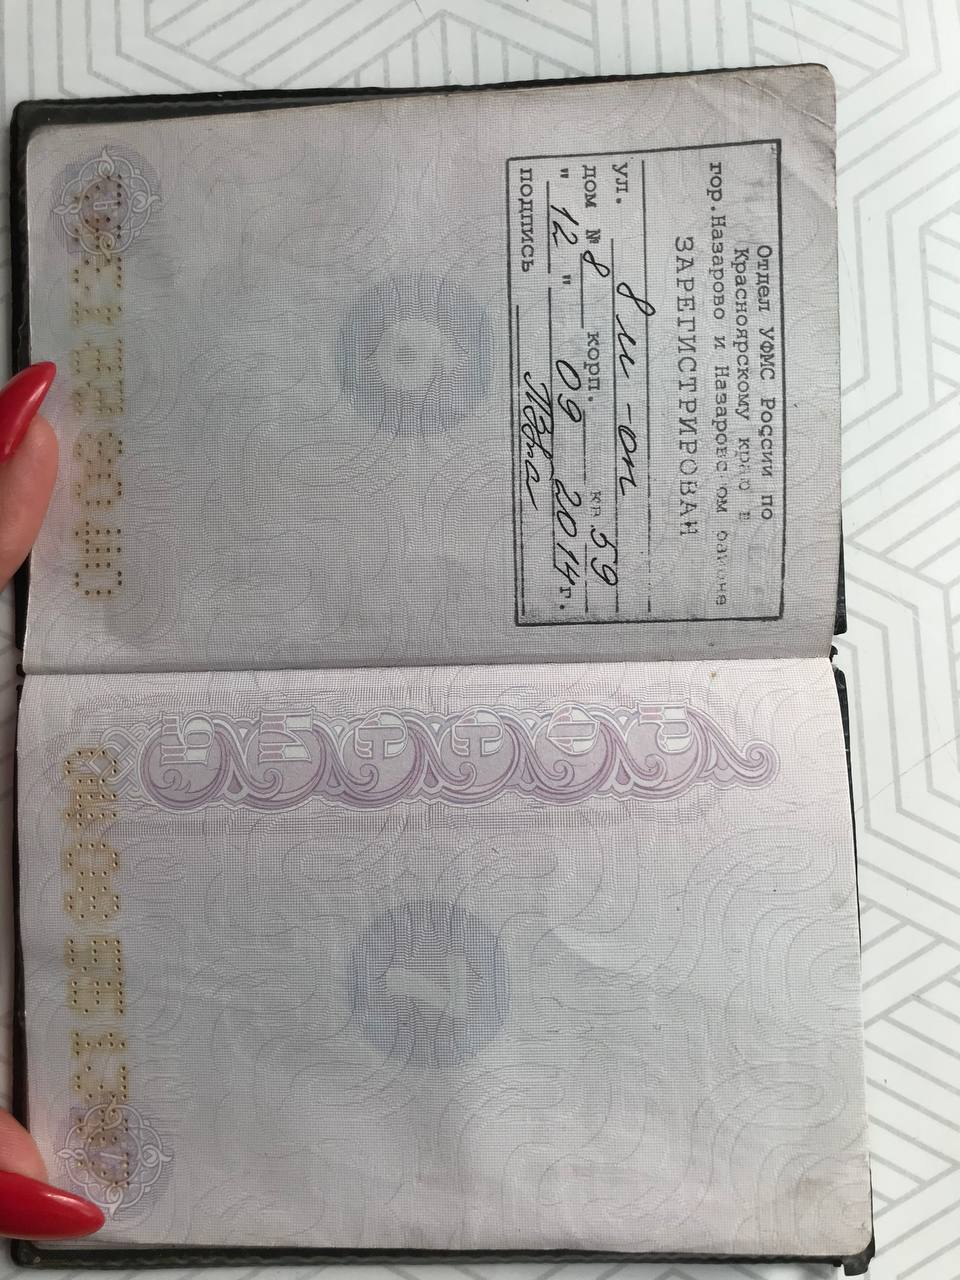 Отдел УФМС России по
Красноярскому краю в
гор.Назарово и Назаровском районе
ЗАРЕГИСТРИРОВАН
ул. 8 м-он
дом № 8 корп. кв 59
" 12 " 09 2014г.
подпись